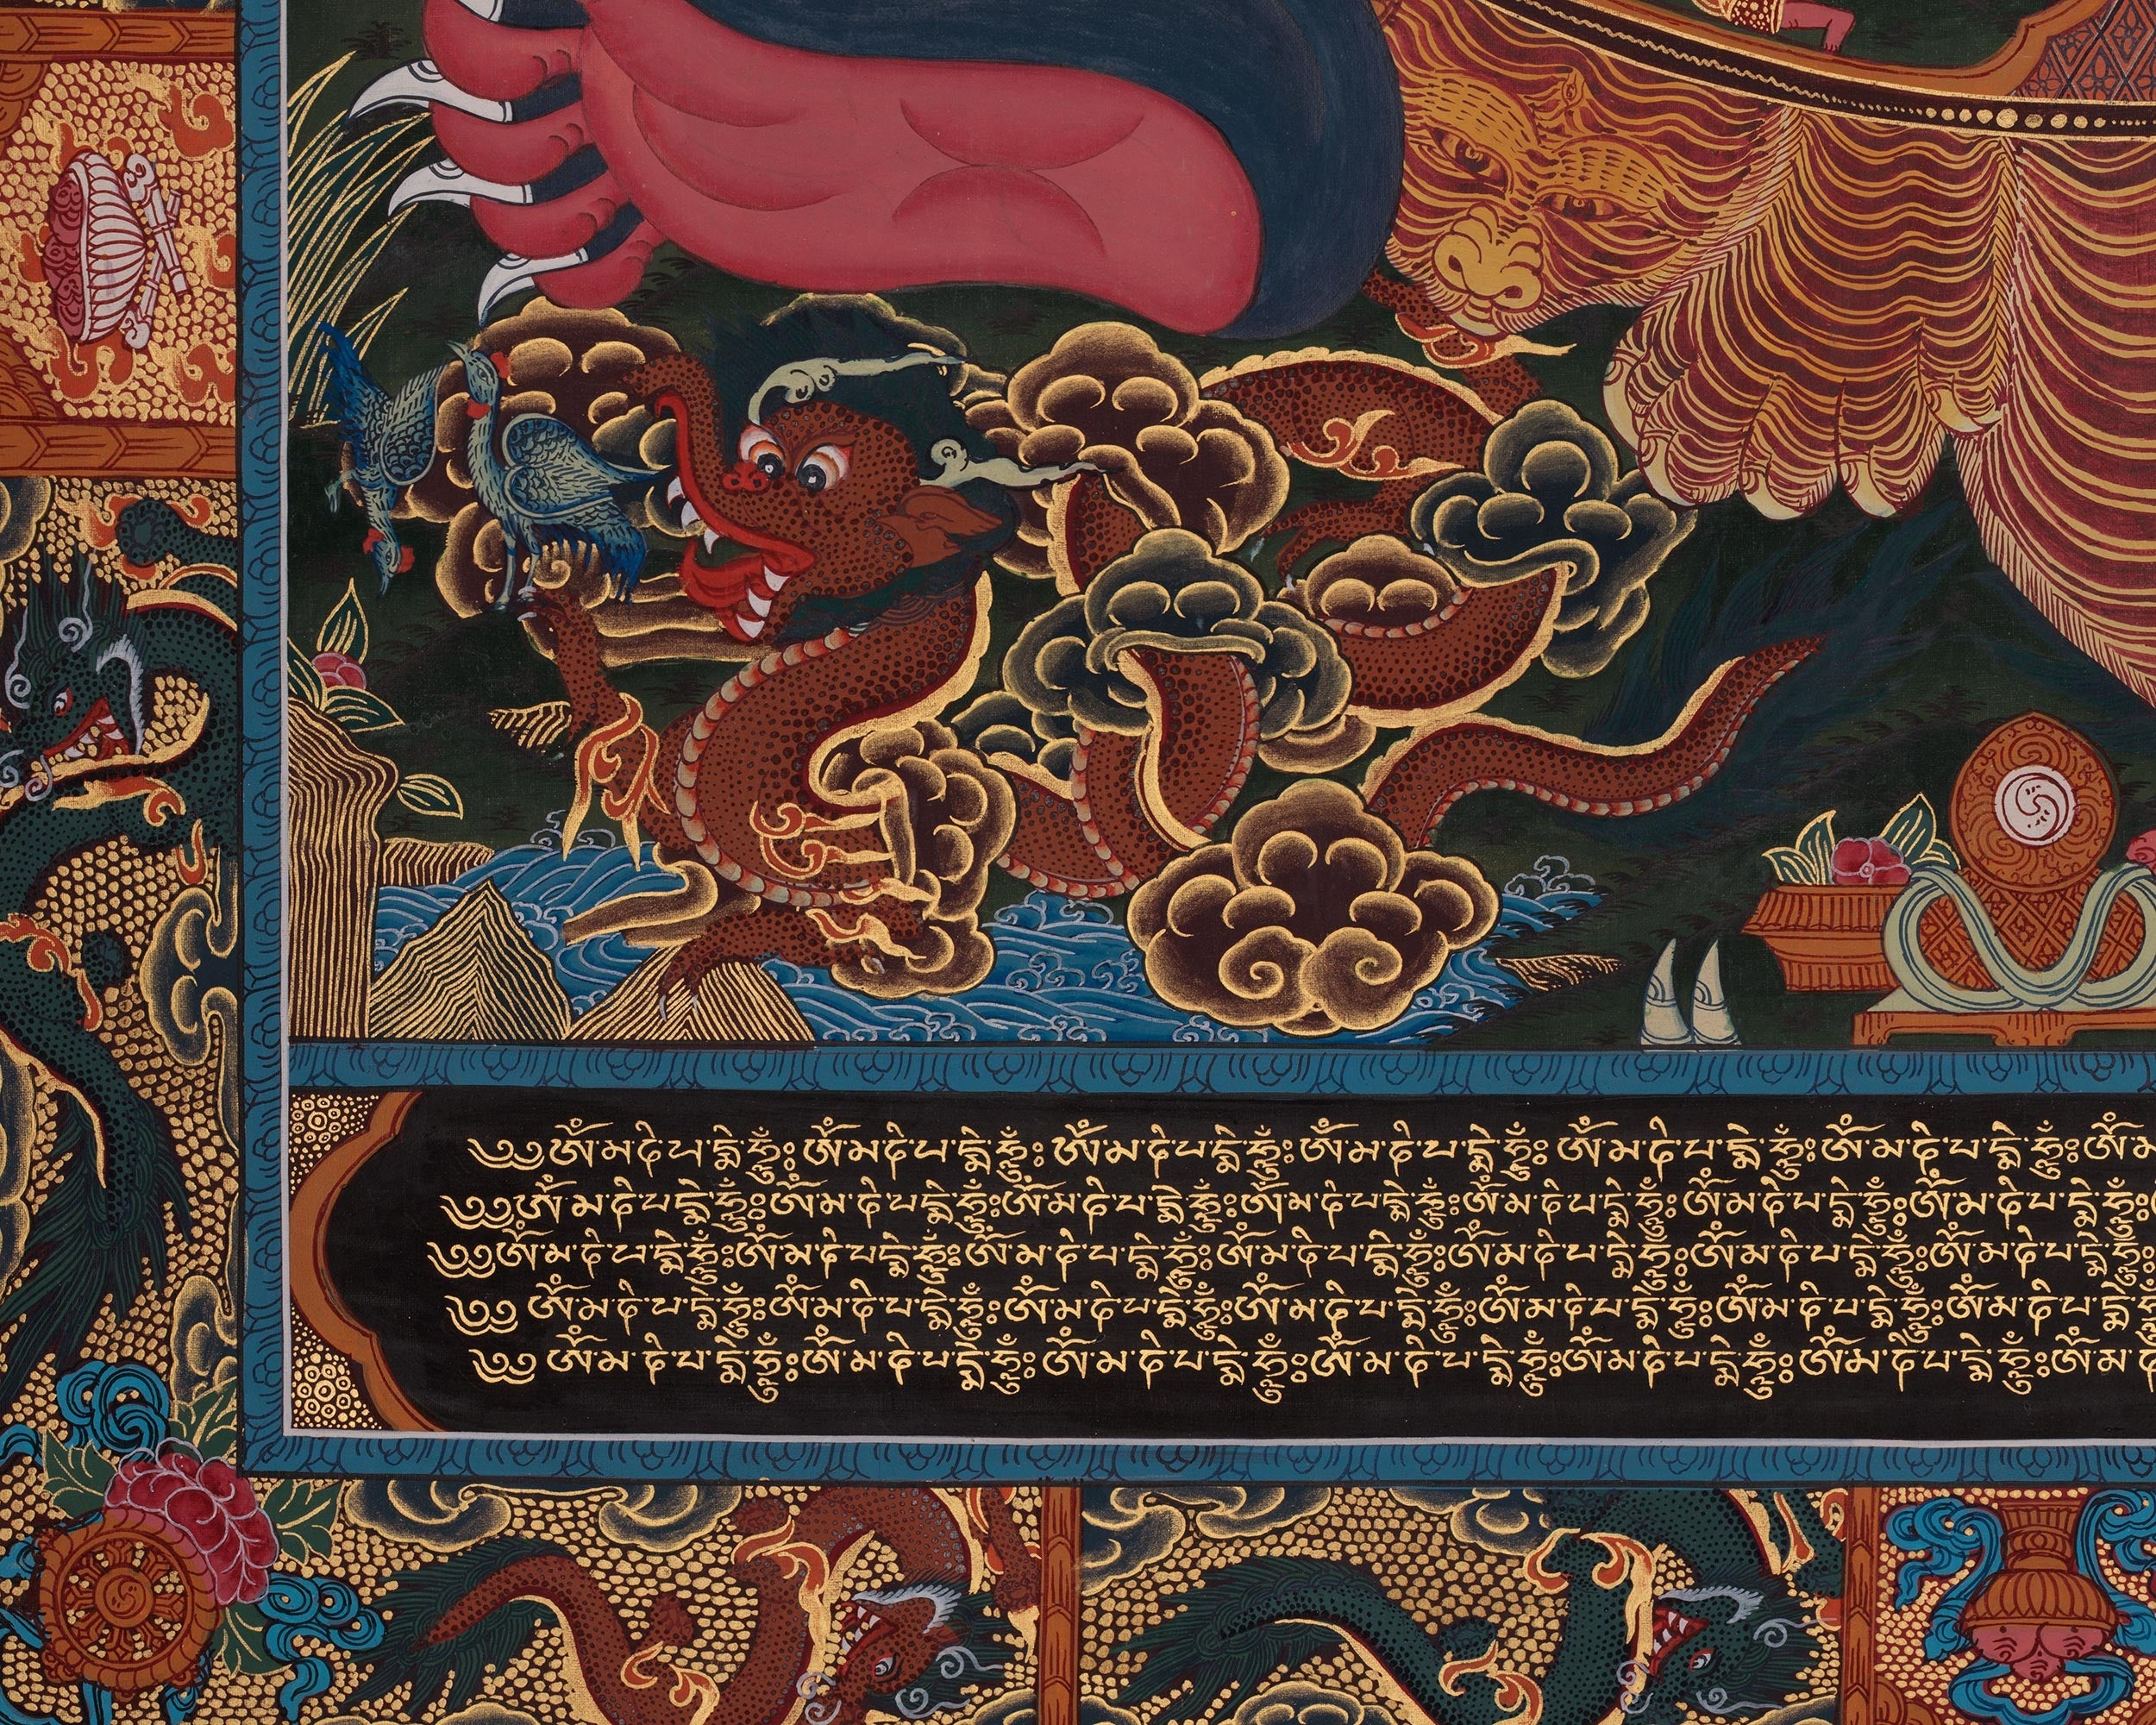 ༄༅ཨོཾ་མ་ཎི་པ་དྨེ་ཧཱུྃ༔ཨོཾ་མ་ཎི་པ་དྨེ་ཧཱུྃ༔ཨོཾ་མ་ཎི་པ་དྨེ་ཧཱུྃ༔ཨོཾ་མ་ཎི་པ་དྨེ་ཧཱུྃ༔ཨོཾ་མ་ཎི་པ་དྨེ་ཧཱུྃ༔ཨོཾ་མ་ཎི་པ་དྨེ་ཧཱུྃ༔ཨོཾ་མ
༄༅ཨོཾ་མ་ཎི་པ་དྨེ་ཧཱུྃ༔ཨོཾ་མ་ཎི་པ་དྨེ་ཧཱུྃ༔ཨོཾ་མ་ཎི་པ་དྨེ་ཧཱུྃ༔ཨོཾ་མ་ཎི་པ་དྨེ་ཧཱུྃ༔ཨོཾ་མ་ཎི་པ་དྨེ་ཧཱུྃ༔ཨོཾ་མ་ཎི་པ་དྨེ་ཧཱུྃ༔ཨོཾ་མ་ཎི་པ་དྨེ་
༄༅ཨོཾ་མ་ཎི་པ་དྨེ་ཧཱུྃ༔ཨོཾ་མ་ཎི་པ་དྨེ་ཧཱུྃ༔ཨོཾ་མ་ཎི་པ་དྨེ་ཧཱུྃ༔ཨོཾ་མ་ཎི་པ་དྨེ་ཧཱུྃ༔ཨོཾ་མ་ཎི་པ་དྨེ་ཧཱུྃ༔ཨོཾ་མ་ཎི་པ་དྨེ་ཧཱུྃ༔ཨོཾ་མ་ཎི་པ་དྨེ་
༄༅ཨོཾ་མ་ཎི་པ་དྨེ་ཧཱུྃ༔ཨོཾ་མ་ཎི་པ་དྨེ་ཧཱུྃ༔ཨོཾ་མ་ཎི་པ་དྨེ་ཧཱུྃ༔ཨོཾ་མ་ཎི་པ་དྨེ་ཧཱུྃ༔ཨོཾ་མ་ཎི་པ་དྨེ་ཧཱུྃ༔ཨོཾ་མ་ཎི་པ་དྨེ་ཧཱུྃ༔ཨོཾ་མ་ཎི་པ་དྨེ
༄༅ཨོཾ་མ་ཎི་པ་དྨེ་ཧཱུྃ༔ཨོཾ་མ་ཎི་པ་དྨེ་ཧཱུྃ༔ཨོཾ་མ་ཎི་པ་དྨེ་ཧཱུྃ༔ཨོཾ་མ་ཎི་པ་དྨེ་ཧཱུྃ༔ཨོཾ་མ་ཎི་པ་དྨེ་ཧཱུྃ༔ཨོཾ་མ་ཎི་པ་དྨེ་ཧཱུྃ༔ཨོཾ་མ་